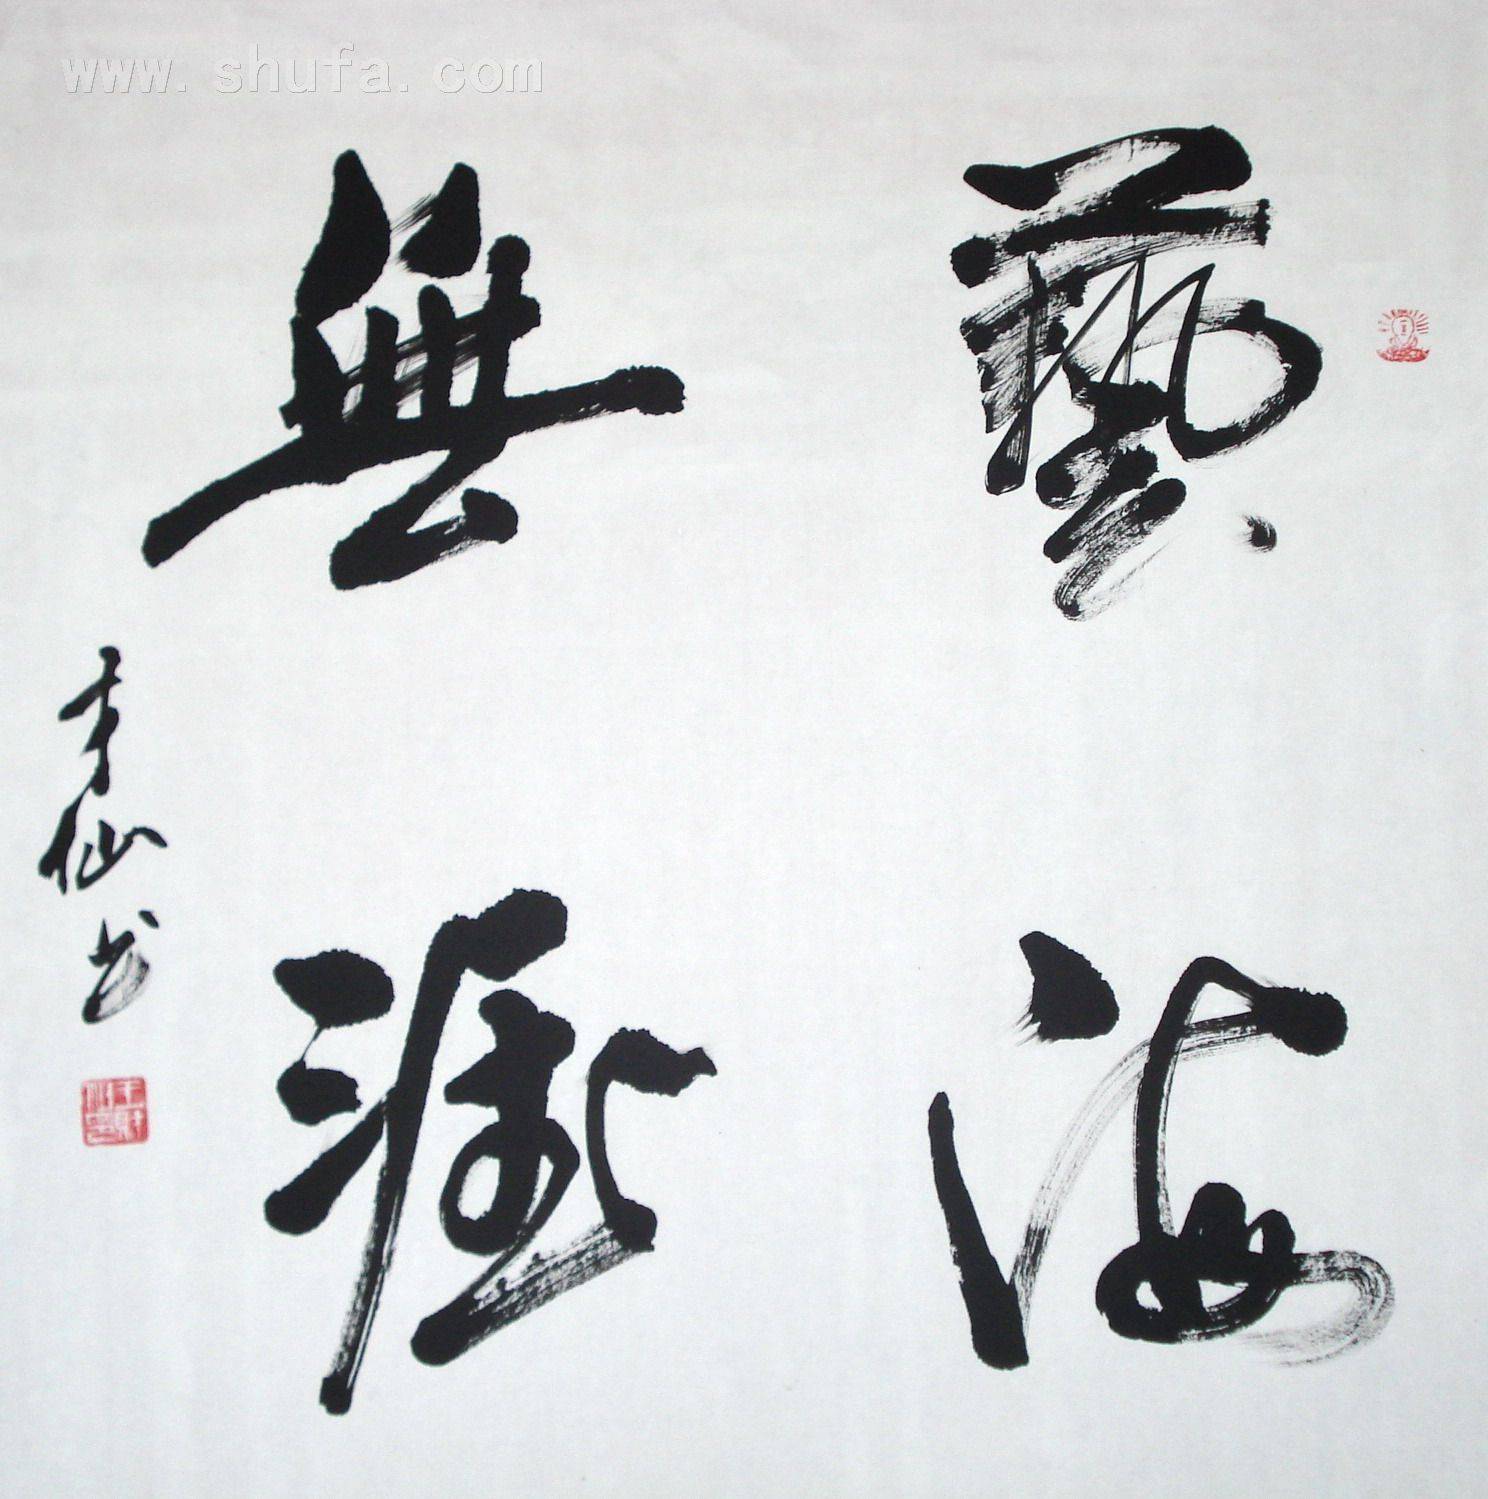 www.shufa.com
藝海
無涯
仙书